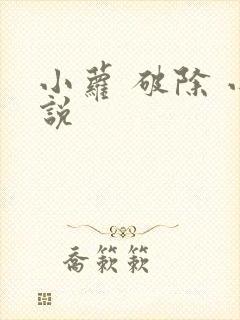 小蘿 破除
說
喬簌簌